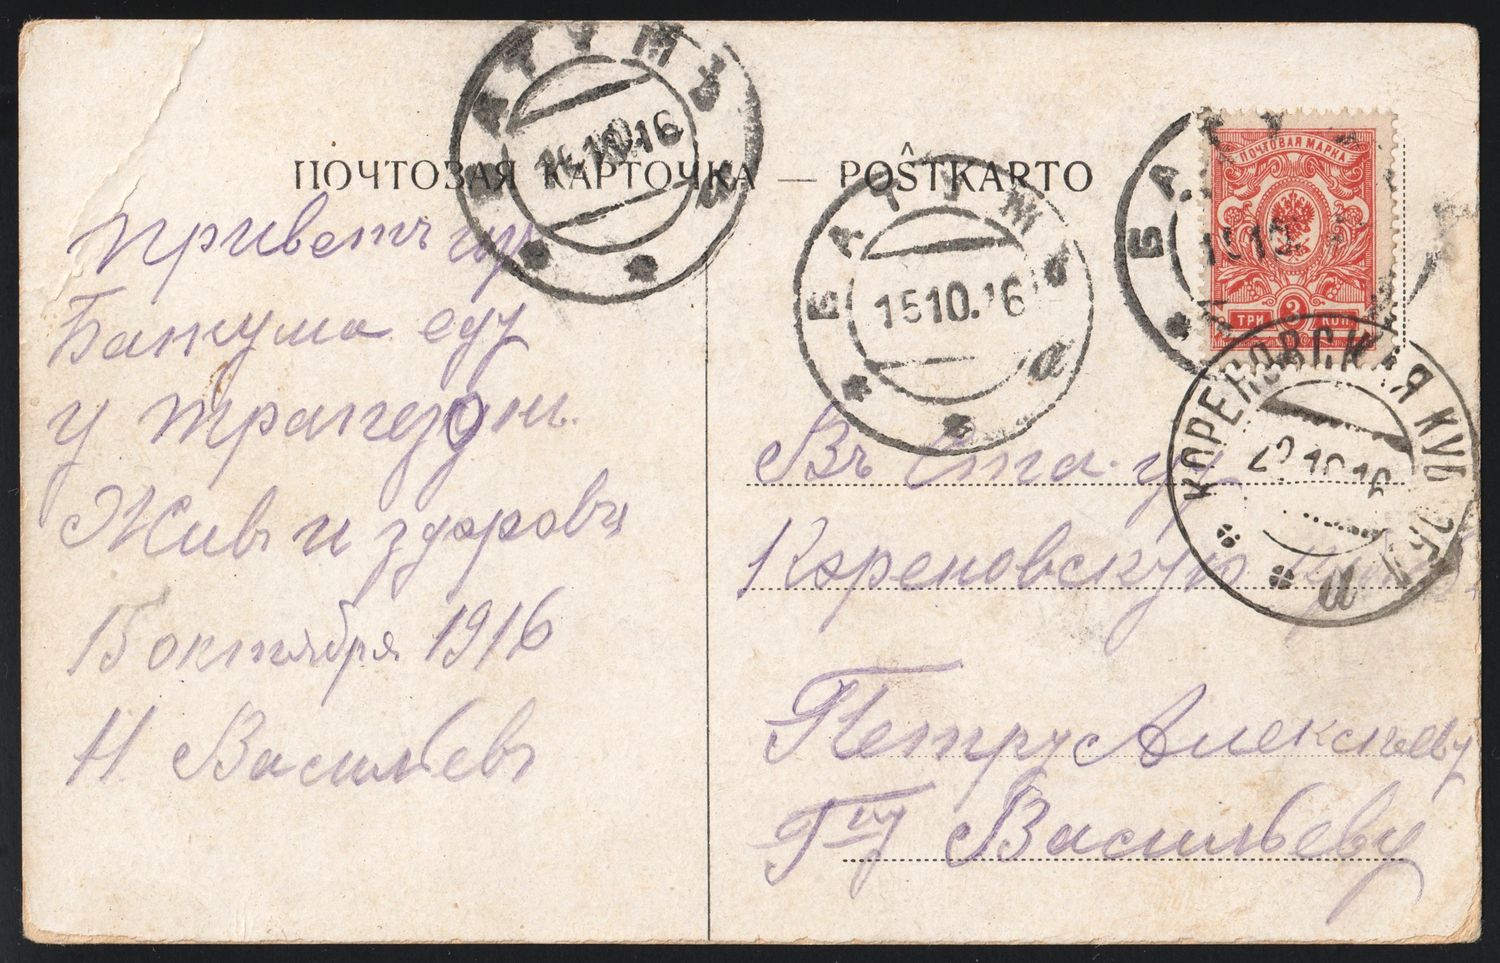 БАТУМЪ
15.10.16
ПОЧТОВАЯ КАРТОЧКА — POŜTKARTO
БАТУМЪ
15 10.16
а
БАТУМ
ПОЧТОВАЯ МАРКА
ТРИ 3 КОП
КОРЕНОВСКАЯ КУБ ОБЛ
22.10.16
а
Приветъ изъ
Батума еду
у Трапезунъ
Живъ и здоровъ
15 октября 1916
Н Васильевъ
Въ Ста-цу
Кореновскую
Петру Алексѣеву
Г-ну Васильеву